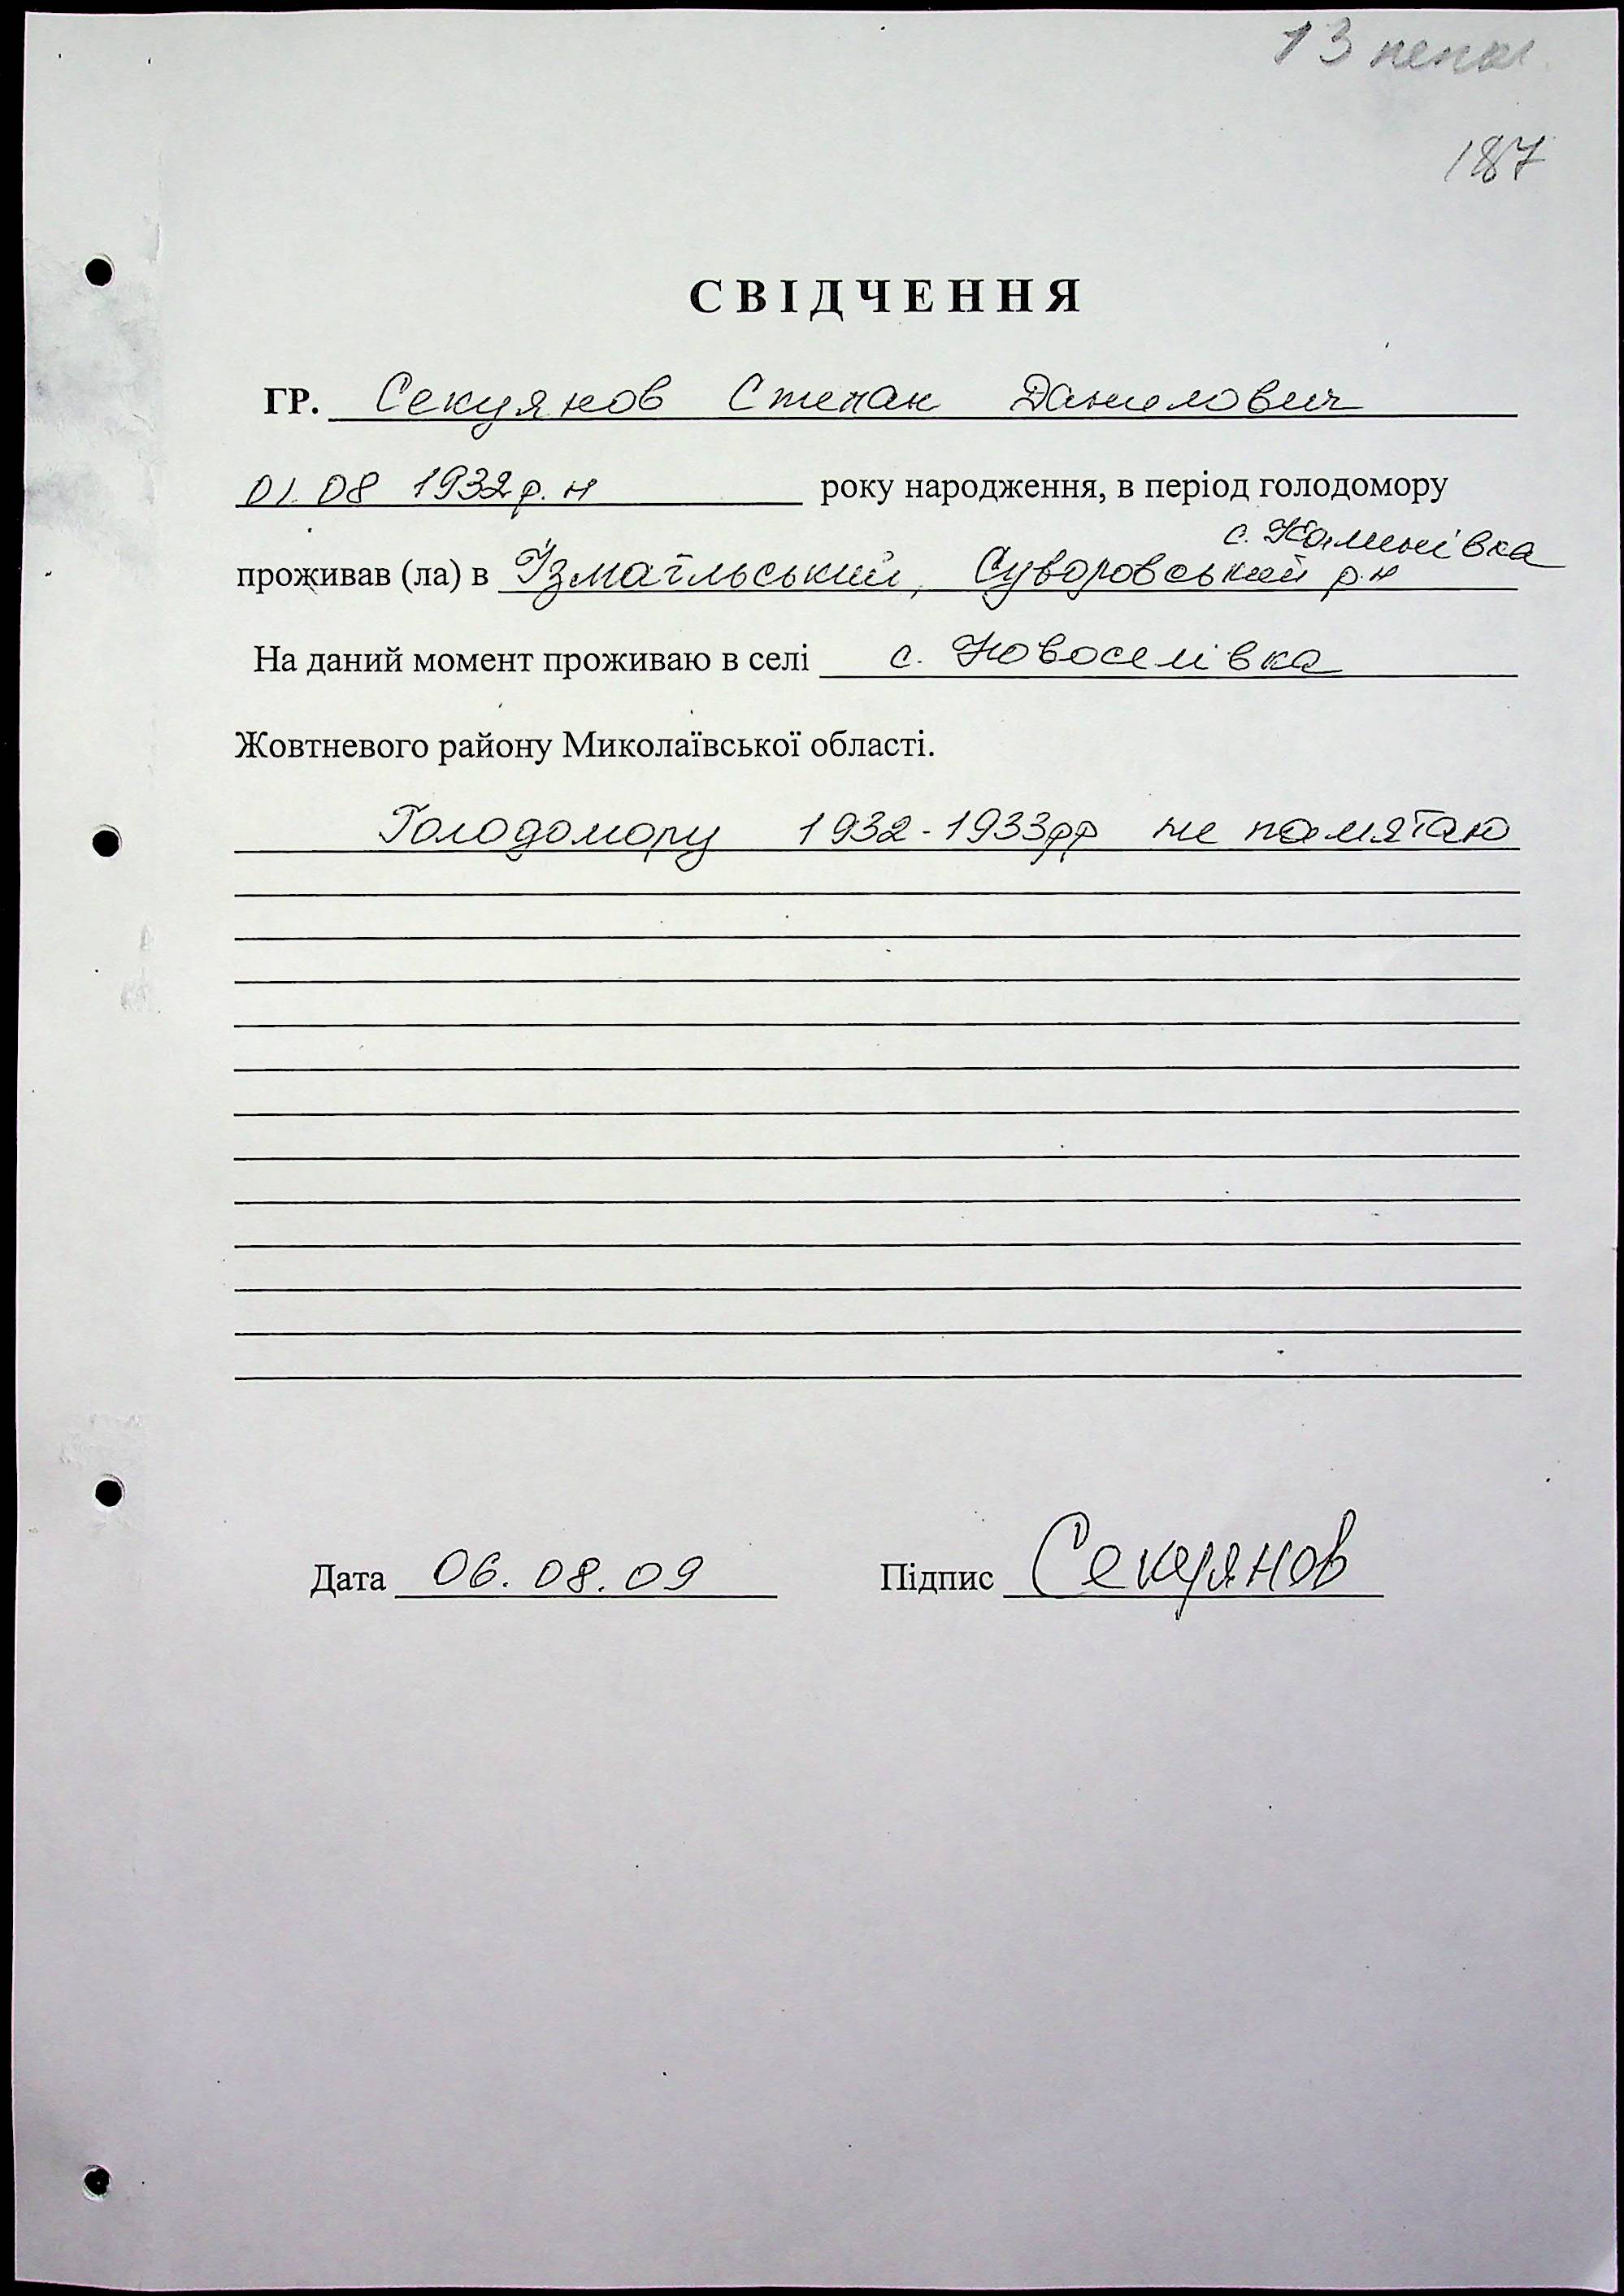 13
187
СВІДЧЕННЯ
ГР. Секуянов Степан Данилович
01.08 1932 р.н року народження, в період голодомору
с. Калинівка
проживав (ла) в Ізмаїльський, Суворовський р-н
На даний момент проживаю в селі с. Новоселівка
Жовтневого району Миколаївської області.
Голодомору 1932-1933рр не памятаю
Дата 06.08.09 Підпис Секуянов